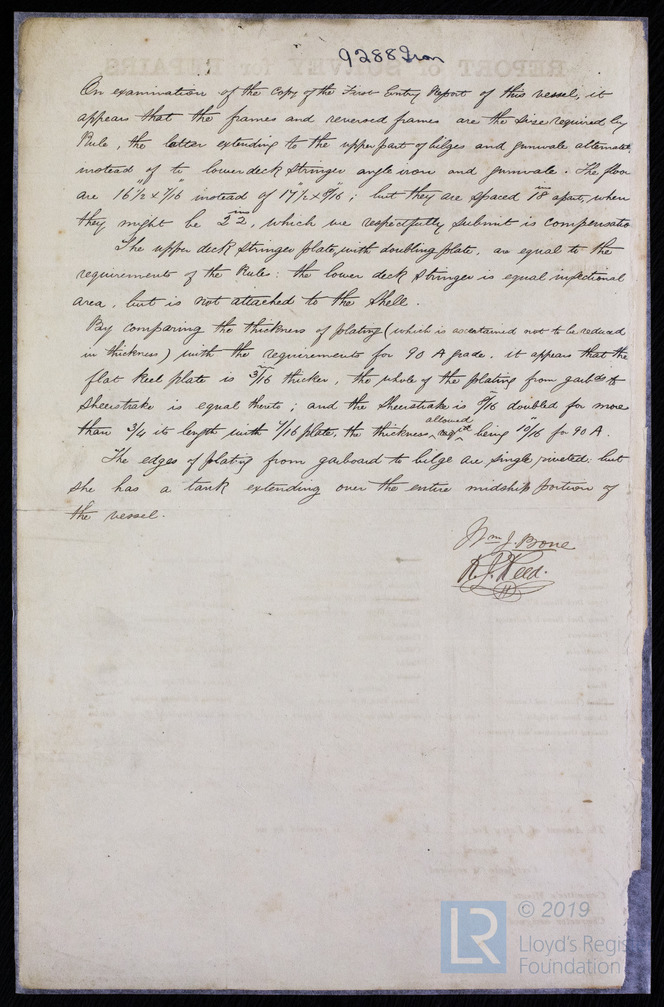 9288 Iron
REPORT of SURVEY for REPAIRS
On examination of the Copy of the First Entry Report of this vessel, it
appears that the frames and reversed frames are the size required by
Rule, the latter extending to the upper part of bilges and gunwale alternate
instead of to lower deck Stringer angle iron and gunwale. The floor
are 16"½ x 7/16" instead of 17"½ x 8/16"; but they are spaced 18 ins apart, when
they might be 22 ins, which we respectfully submit is compensatio
The upper deck Stringer plate, with doubling plate, are equal to the
requirements of the Rules: the lower deck Stringer is equal in sectional
area, but is not attached to the Shell.
By comparing the thickness of plating (which is ascertained not to be reduced
in thickness) with the requirements for 90 A grade, it appears that the
flat keel plate is 3/16 thicker, the whole of the plating from garbd to
Sheerstrake is equal thereto; and the Sheerstrake is /16 doubled for more
than 3/4 its length with 7/16 plate, the thickness allowed being 10/16 for 90 A.
The edges of plating from garboard to bilge are single riveted but
she has a tank extending over the entire midship portion of
the vessel.
Wm J. Bone
R. J. Reed.
LR
© 2019
Lloyd's Regist
Foundation